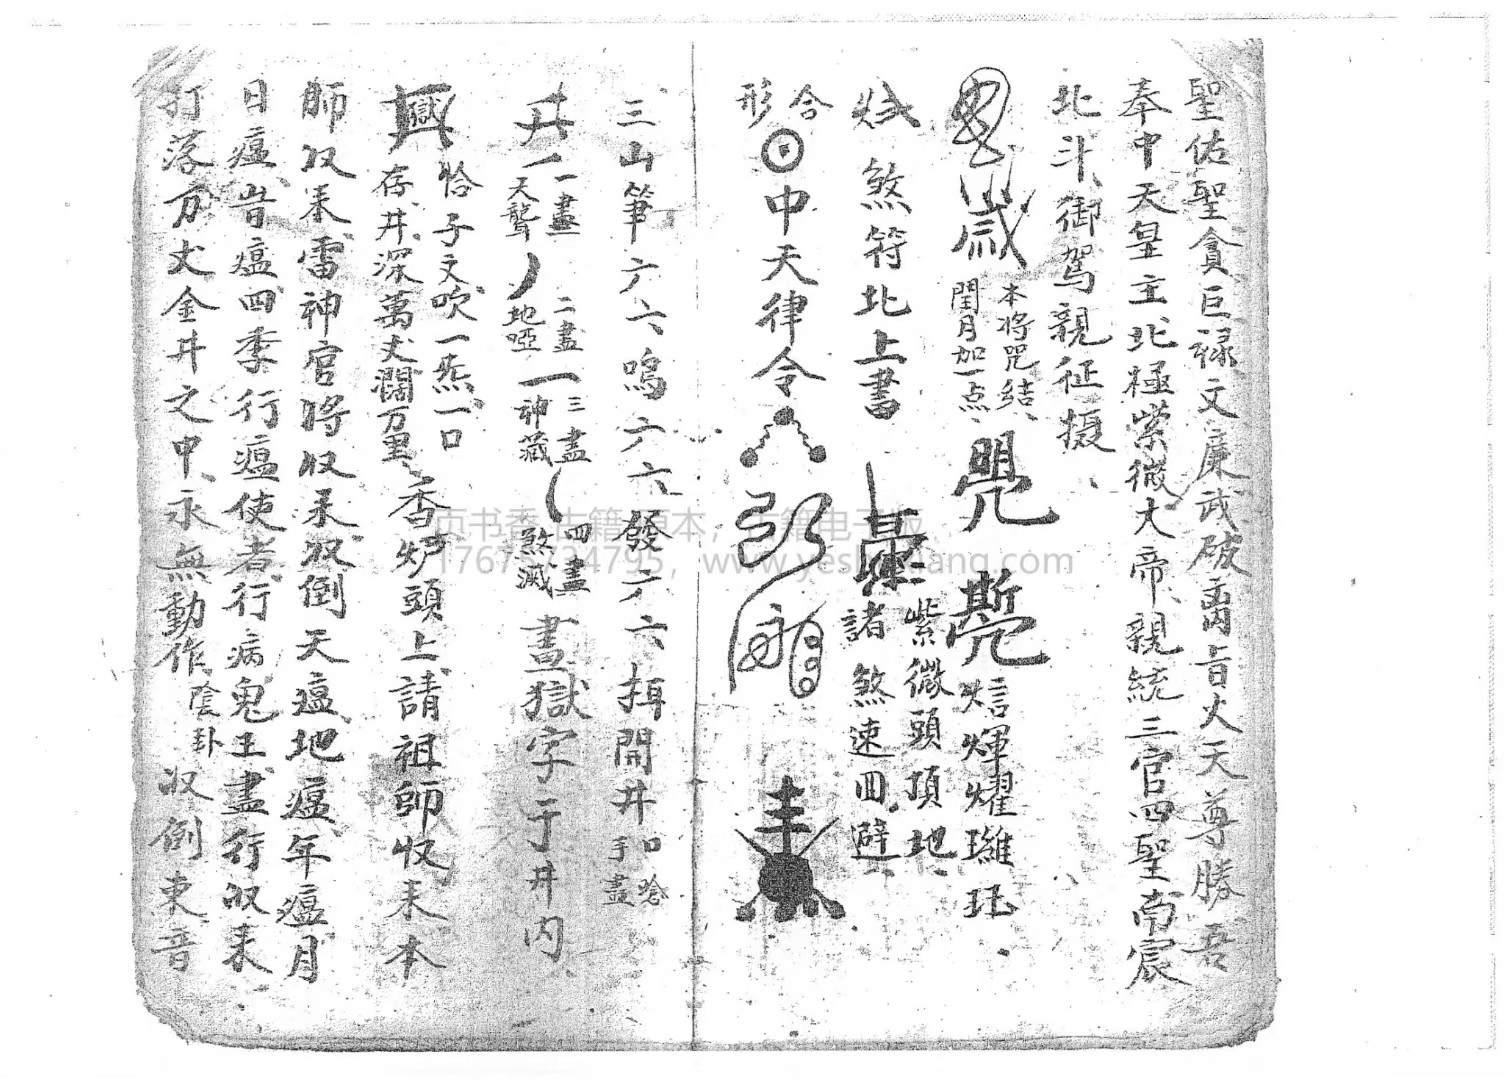 聖佑聖貪巨祿文廉武破离旨火天尊勝吾
奉中天星主北極紫微大帝親統三官四聖南宸
北斗御駕親征摄
本将咒结
閏月加一点
煌耀
煞符北上書
紫微頭頂地
諸煞速回避
合形
中天律令
三山筆六六六鳴六六六發六六六揖開井口
手畫
井
一畫天聾
二畫地啞
三畫神藏
四畫煞滅
畫獄字于井内
恰子文吹一炁一口
存井深萬丈濶万里
香炉頭上請祖師收来本
師收来雷神官将收来收倒天瘟地瘟年瘟月
日瘟皆瘟四季行瘟使者行病鬼王盡行收来
打落万丈金井之中永無動作陰卦收倒東音
页书斋古籍原本，古籍电子版